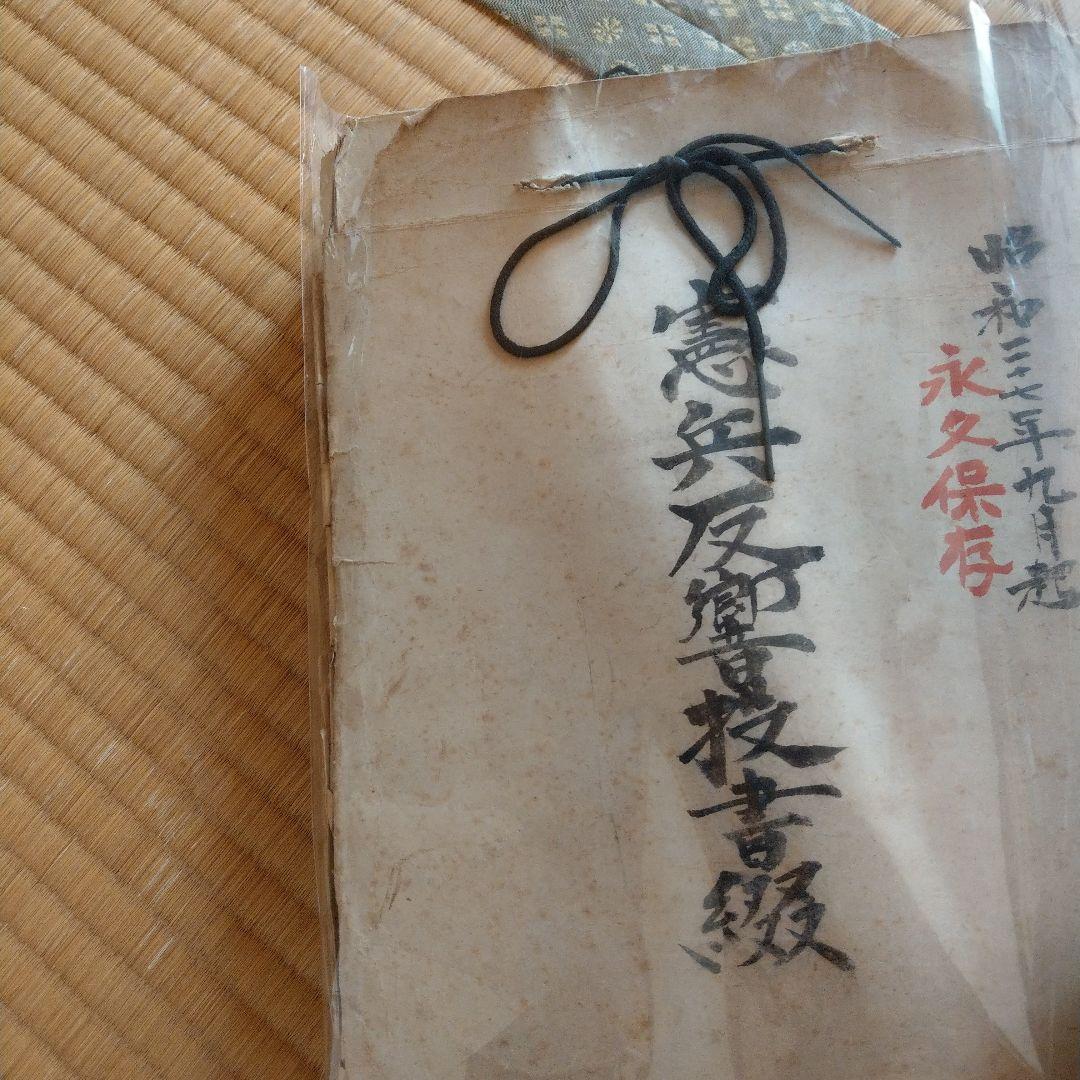 昭和二十七年九月起
永久保存
憲兵反響投書綴